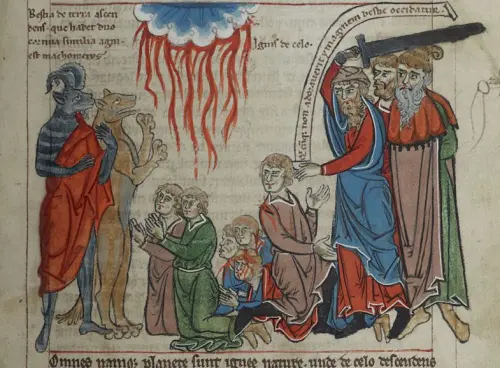 Bestia de terra ascen
dens· que habet duo
cornua similia agni
est machometus·
Ignis de celo·
non adorauerit ymaginem bestie occidatur·
Omnes namq; planete sunt ignee nature· unde de celo descendens